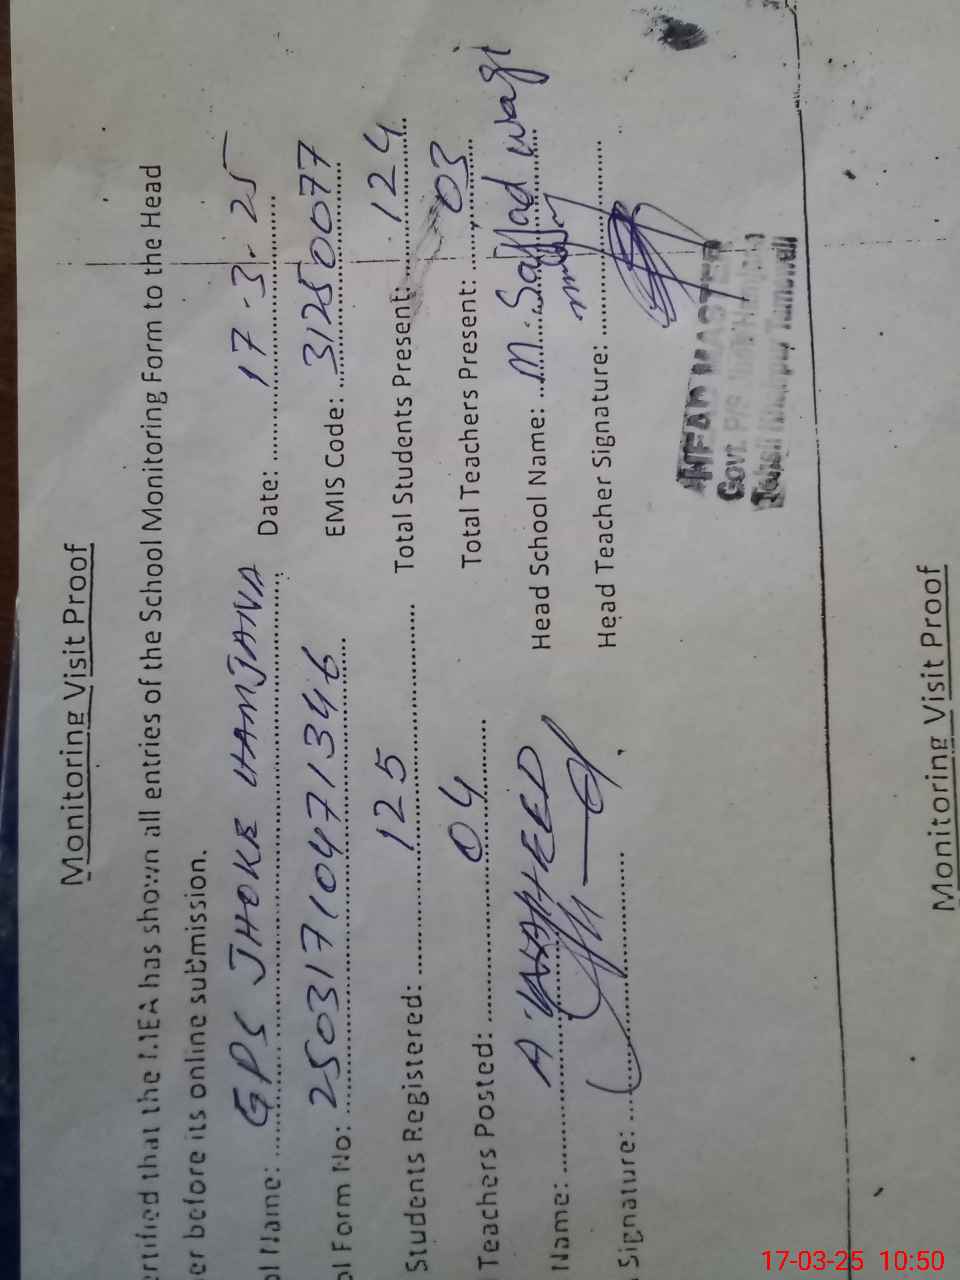 Monitoring Visit Proof
ertified that the MEA has shown all entries of the School Monitoring Form to the Head
er before its online submission.
ol Name: GPS JHOKE HAMJANA Date: 17-3-25
ol Form No: 25031710471346 EMIS Code: 31250077
Students Registered: 125 Total Students Present: 124
Teachers Posted: 04 Total Teachers Present: 03
Name: A. WAHEED Head School Name: M. Sajjad
Signature: Head Teacher Signature:
HEAD MASTER
Govt. P/S
Tehsil
Monitoring Visit Proof
17-03-25 10:50